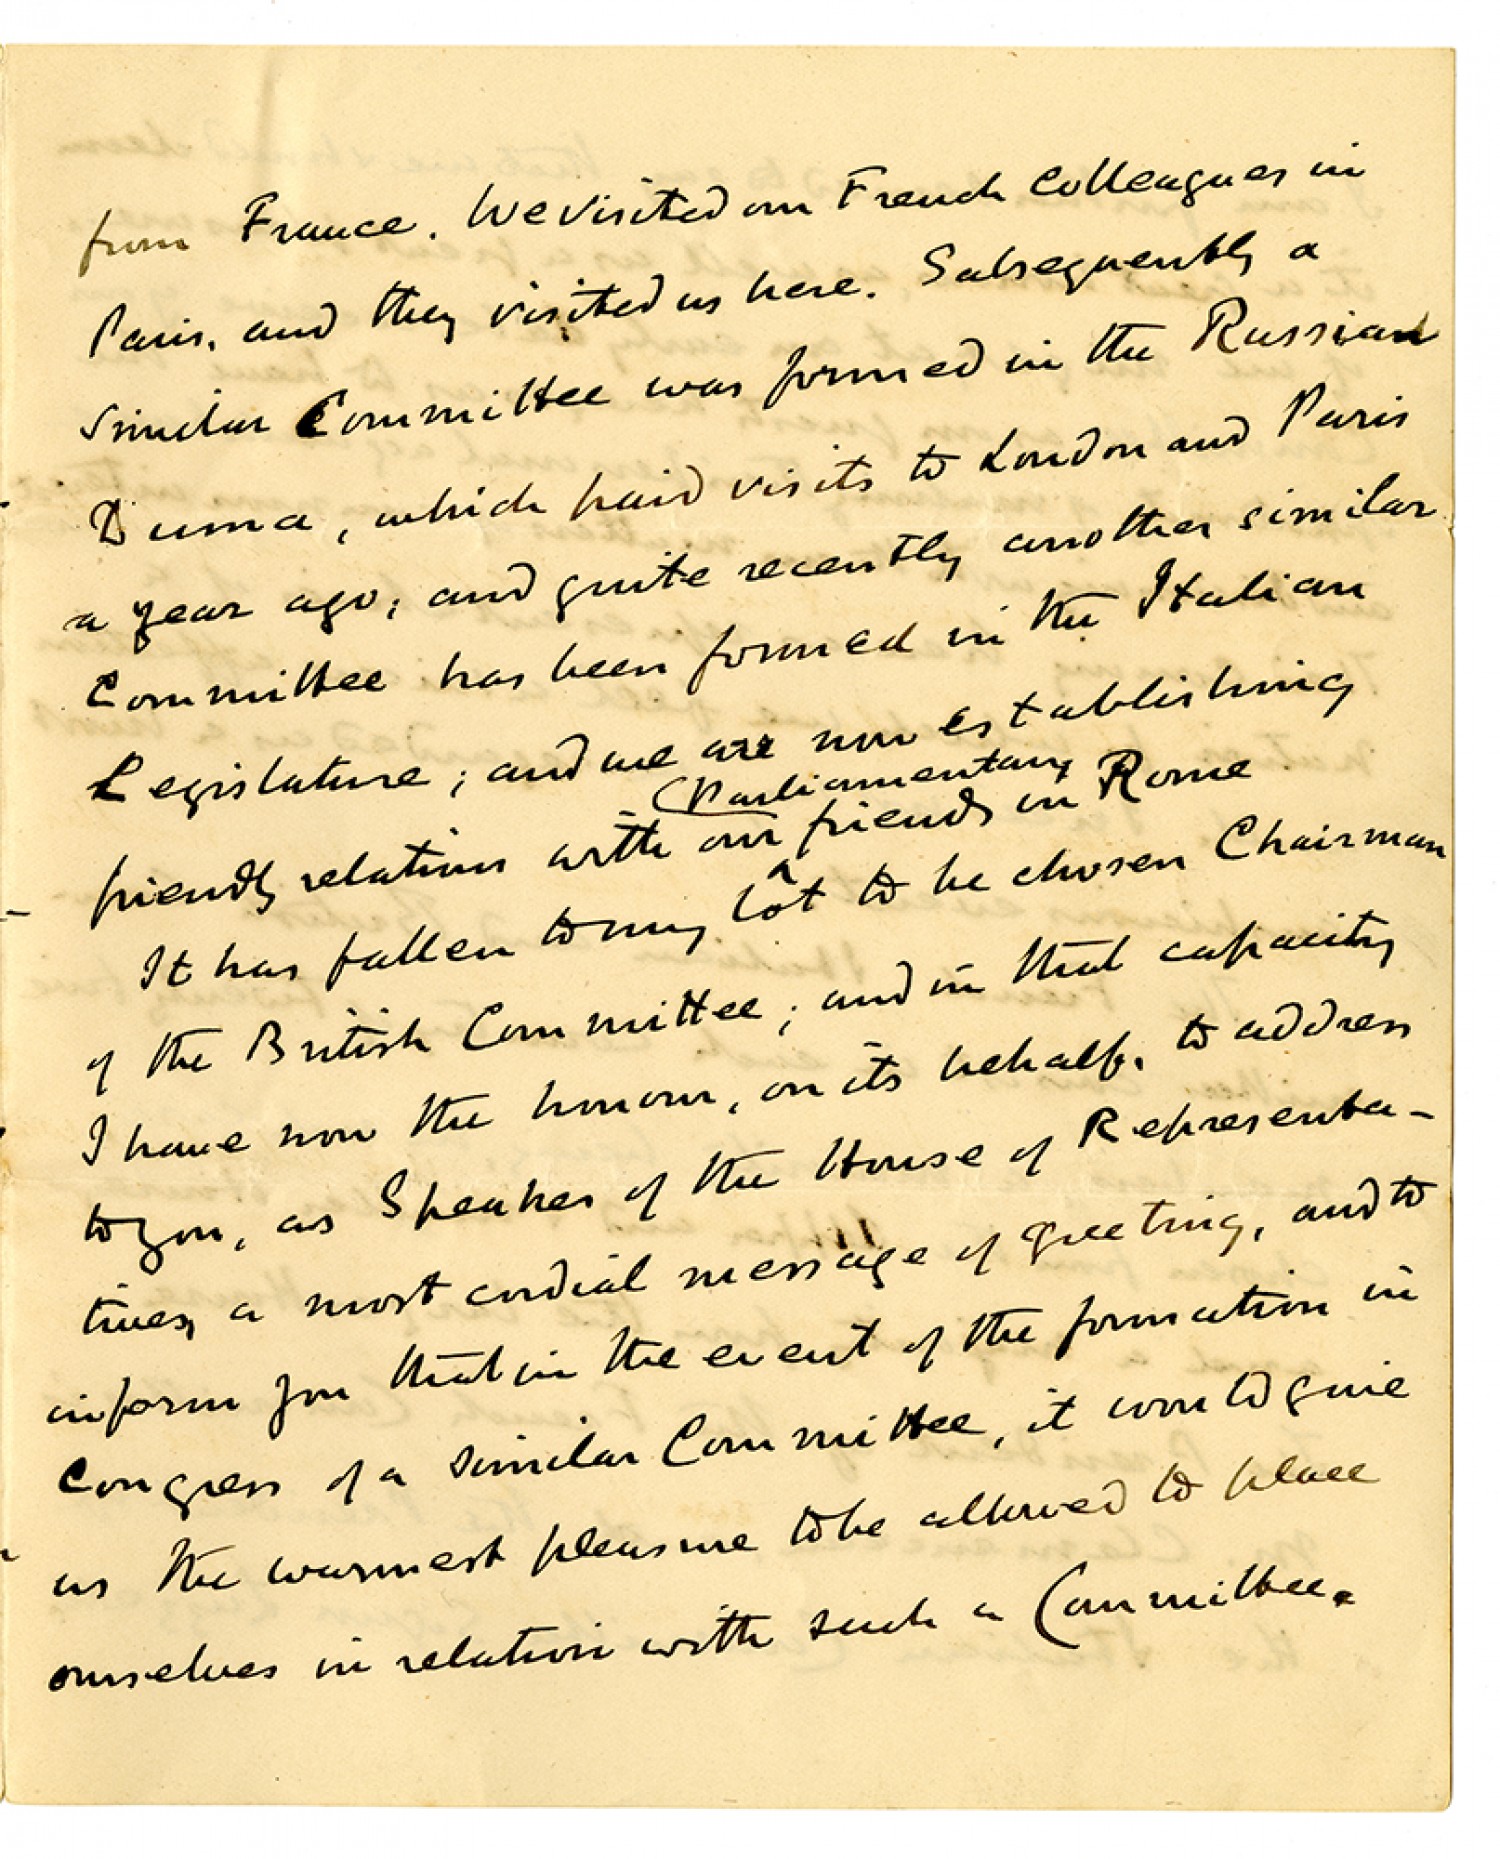 from France. We visited our French Colleagues in
Paris, and they visited us here. Subsequently a
similar Committee was formed in the Russian
Duma, which paid visits to London and Paris
a year ago; and quite recently another similar
Committee has been formed in the Italian
Legislature; and we are now establishing
(Parliamentary
friendly relations with our friends in Rome
It has fallen to my lot to be chosen Chairman
of the British Committee; and in that capacity
I have now the honour, on its behalf, to address
to you, as Speaker of the House of Representa-
tives, a most cordial message of greeting, and to
inform you that in the event of the formation in
Congress of a similar Committee, it would give
us the warmest pleasure to be allowed to place
ourselves in relation with such a Committee.